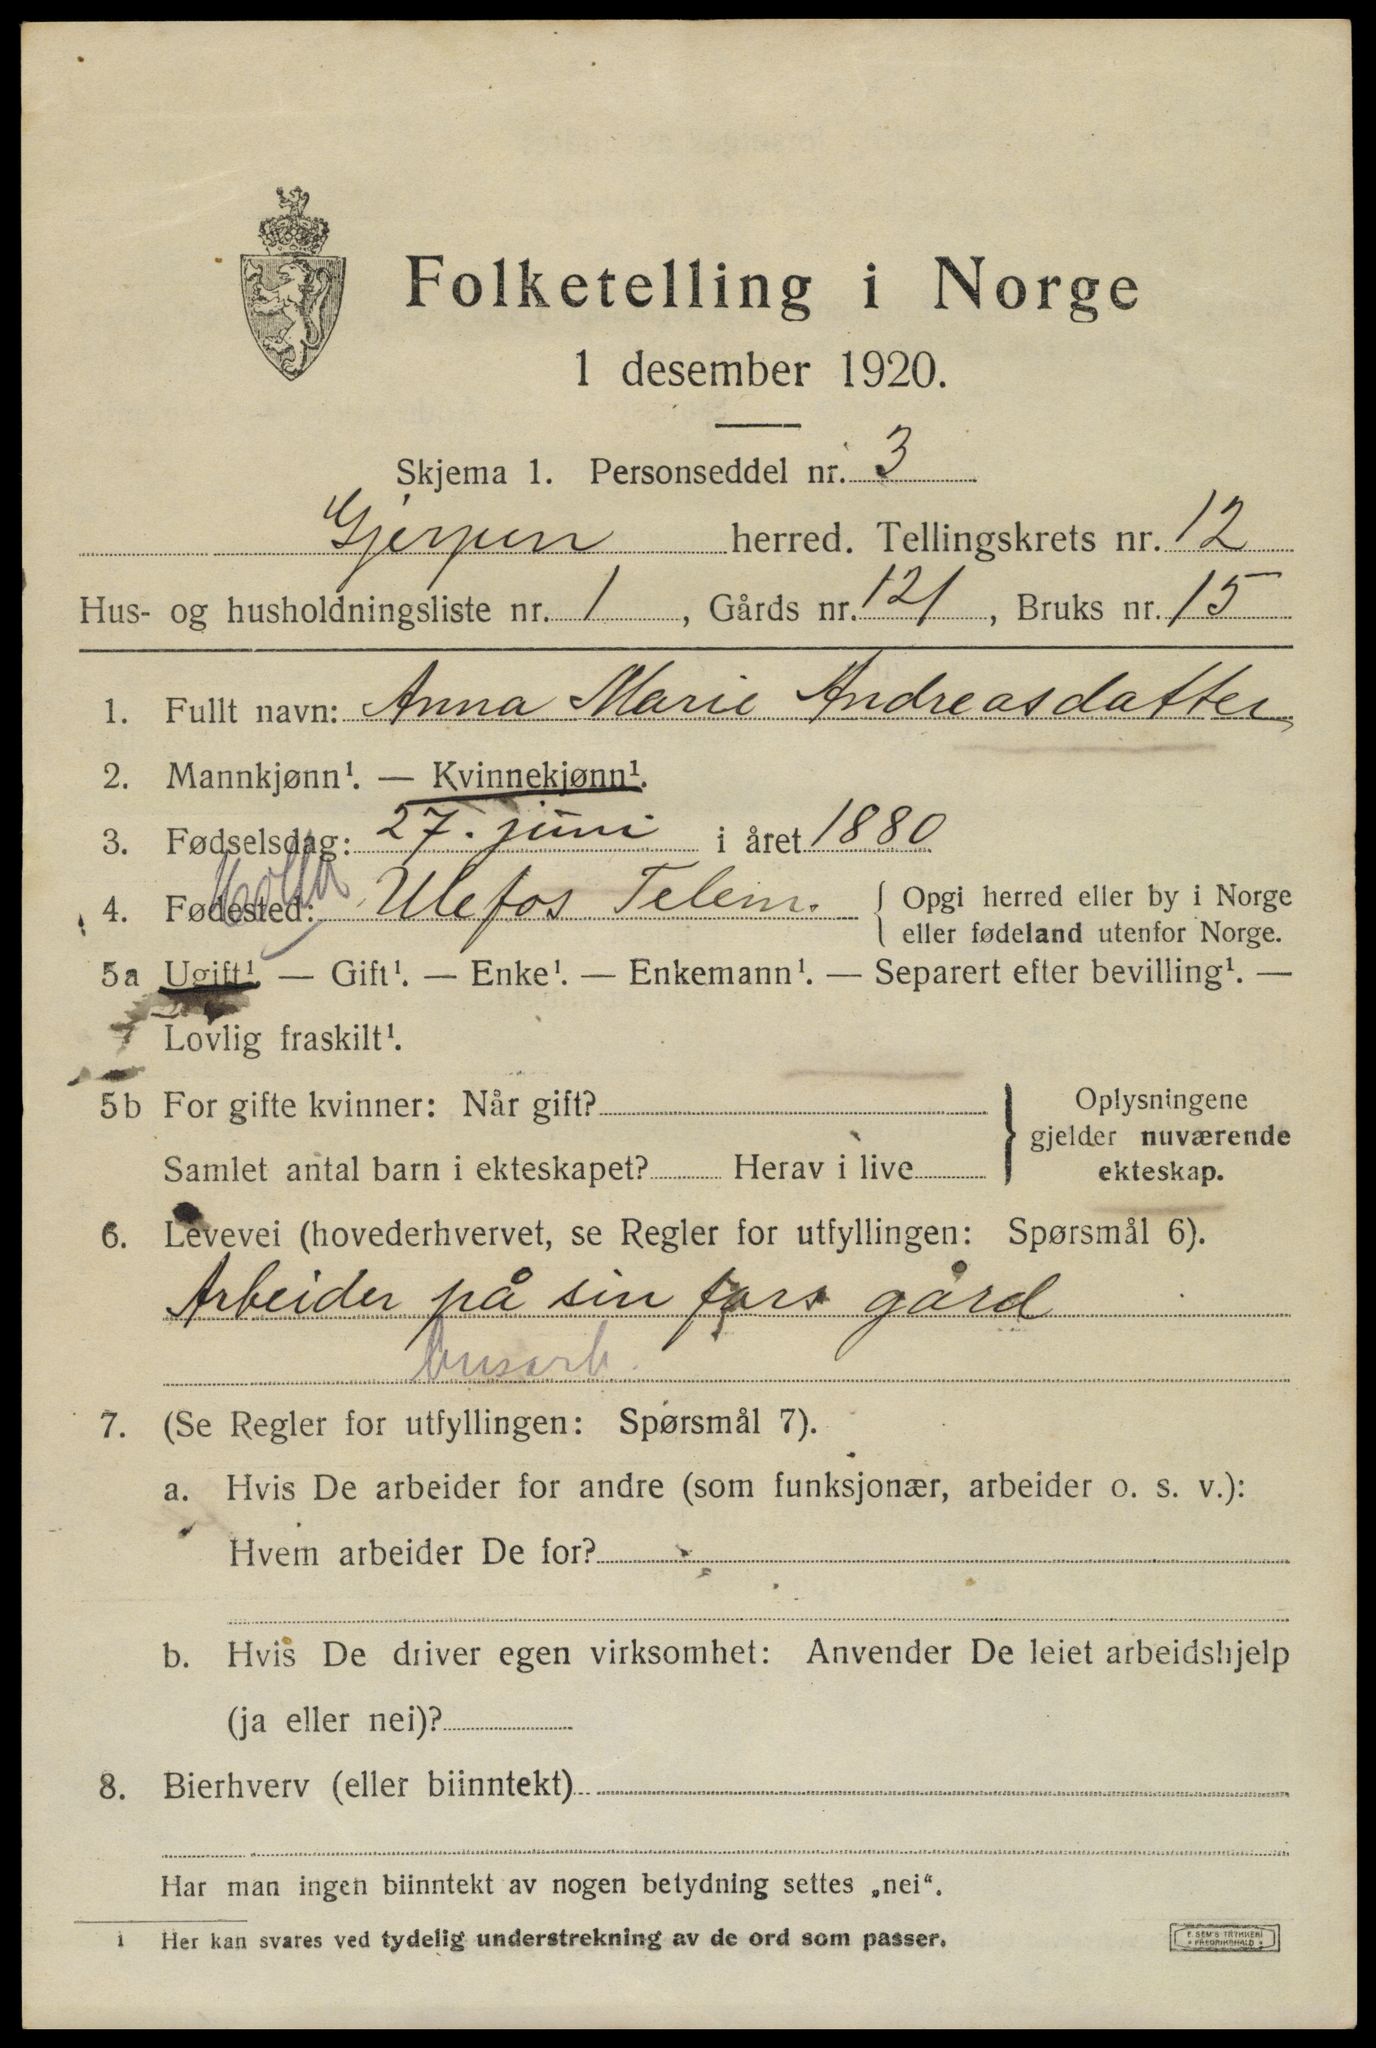 Folketelling i Norge
1 desember 1920.
Skjema 1. Personseddel nr. 3
Gjerpen herred. Tellingskrets nr. 12
Hus- og husholdningsliste nr. 1, Gårds nr. 121, Bruks nr. 15
1. Fullt navn: Anna Marie Andreasdatter
2. Mannkjønn¹. — Kvinnekjønn¹.
3. Fødselsdag: 27. juni i året 1880
Holla
4. Fødested: Ulefos Telem. { Opgi herred eller by i Norge
eller fødeland utenfor Norge.
5a Ugift¹. — Gift¹. — Enke¹. — Enkemann¹. — Separert efter bevilling¹. —
Lovlig fraskilt¹.
5b For gifte kvinner: Når gift?
Samlet antal barn i ekteskapet? Herav i live
} Oplysningene
gjelder nuværende
ekteskap.
6. Levevei (hovederhvervet, se Regler for utfyllingen: Spørsmål 6).
Arbeider på sin fars gård
husarb.
7. (Se Regler for utfyllingen: Spørsmål 7).
a. Hvis De arbeider for andre (som funksjonær, arbeider o. s. v.):
Hvem arbeider De for?
b. Hvis De driver egen virksomhet: Anvender De leiet arbeidshjelp
(ja eller nei)?
8. Bierhverv (eller biinntekt)
Har man ingen biinntekt av nogen betydning settes „nei“.
1 Her kan svares ved tydelig understrekning av de ord som passer.
E. SEM'S TRYKKERI
FREDRIKSHALD